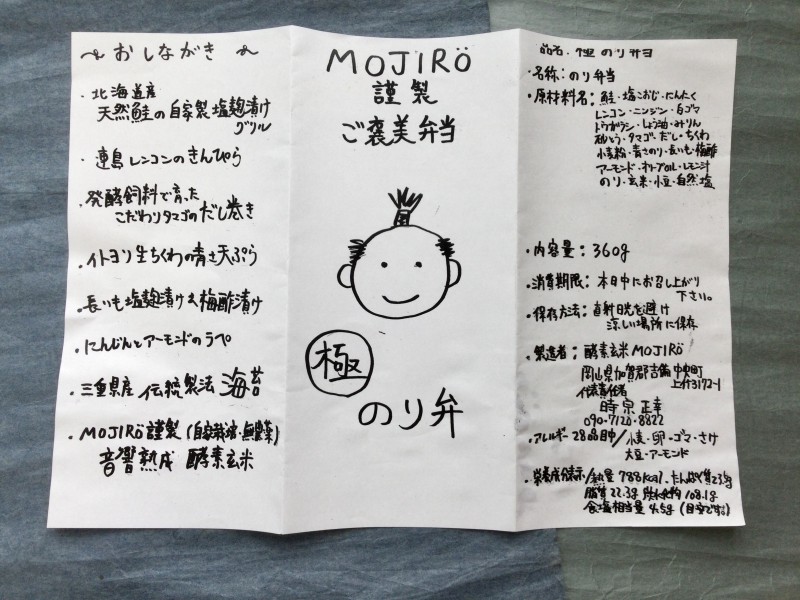 ～ おしながき ～
・北海道産
天然鮭の自家製塩麹漬け
グリル
・連島レンコンのきんぴら
・発酵飼料で育った
こだわりタマゴのだし巻き
・イトヨリ生ちくわの青さ天ぷら
・長いも塩麹漬け&梅酢漬け
・にんじんとアーモンドのラペ
・三重県産 伝統製法 海苔
・MOJIRÖ謹製(自家栽培・無農薬)
音響熟成 酵素玄米
MOJIRÖ
謹製
ご褒美弁当
極
のり弁
品名:極のり弁
・名称:のり弁当
・原材料名:鮭・塩こおじ・にんたく
レンコン・ニンジン・白ゴマ
トウガラシ・しょう油・みりん
砂とう・タマゴ・だし・ちくわ
小麦粉・青さのり・長いも・梅酢
アーモンド・オリーブOIL・レモン汁
のり・玄米・小豆・自然塩
・内容量:360g
・消費期限:本日中にお召し上がり
下さい。
・保存方法:直射日光を避け
涼しい場所に保存
・製造者:酵素玄米MOJIRÖ
岡山県加賀郡吉備中央町
上竹3172-1
代表責任者
時宗 正幸
090-7120-8822
・アレルギー28品目中/小麦・卵・ゴマ・さけ
大豆・アーモンド
・栄養成分表示/熱量 788kcal.たんぱく質23.9g
脂質 22.3g 炭水化物 108.1g
食塩相当量 4.5g (目安です)